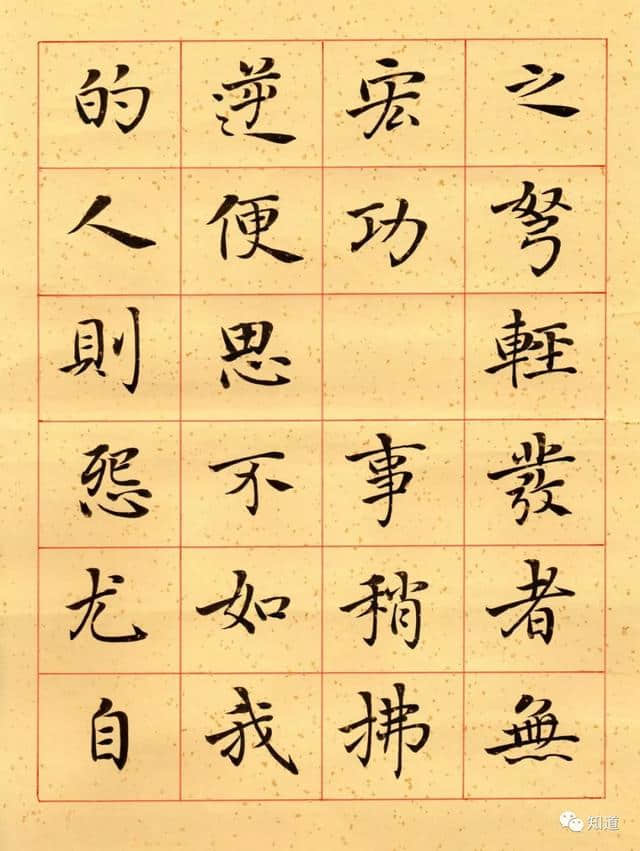 之弩輕發者無
宏功 事稍拂
逆便思不如我
的人則怨尤自
知道